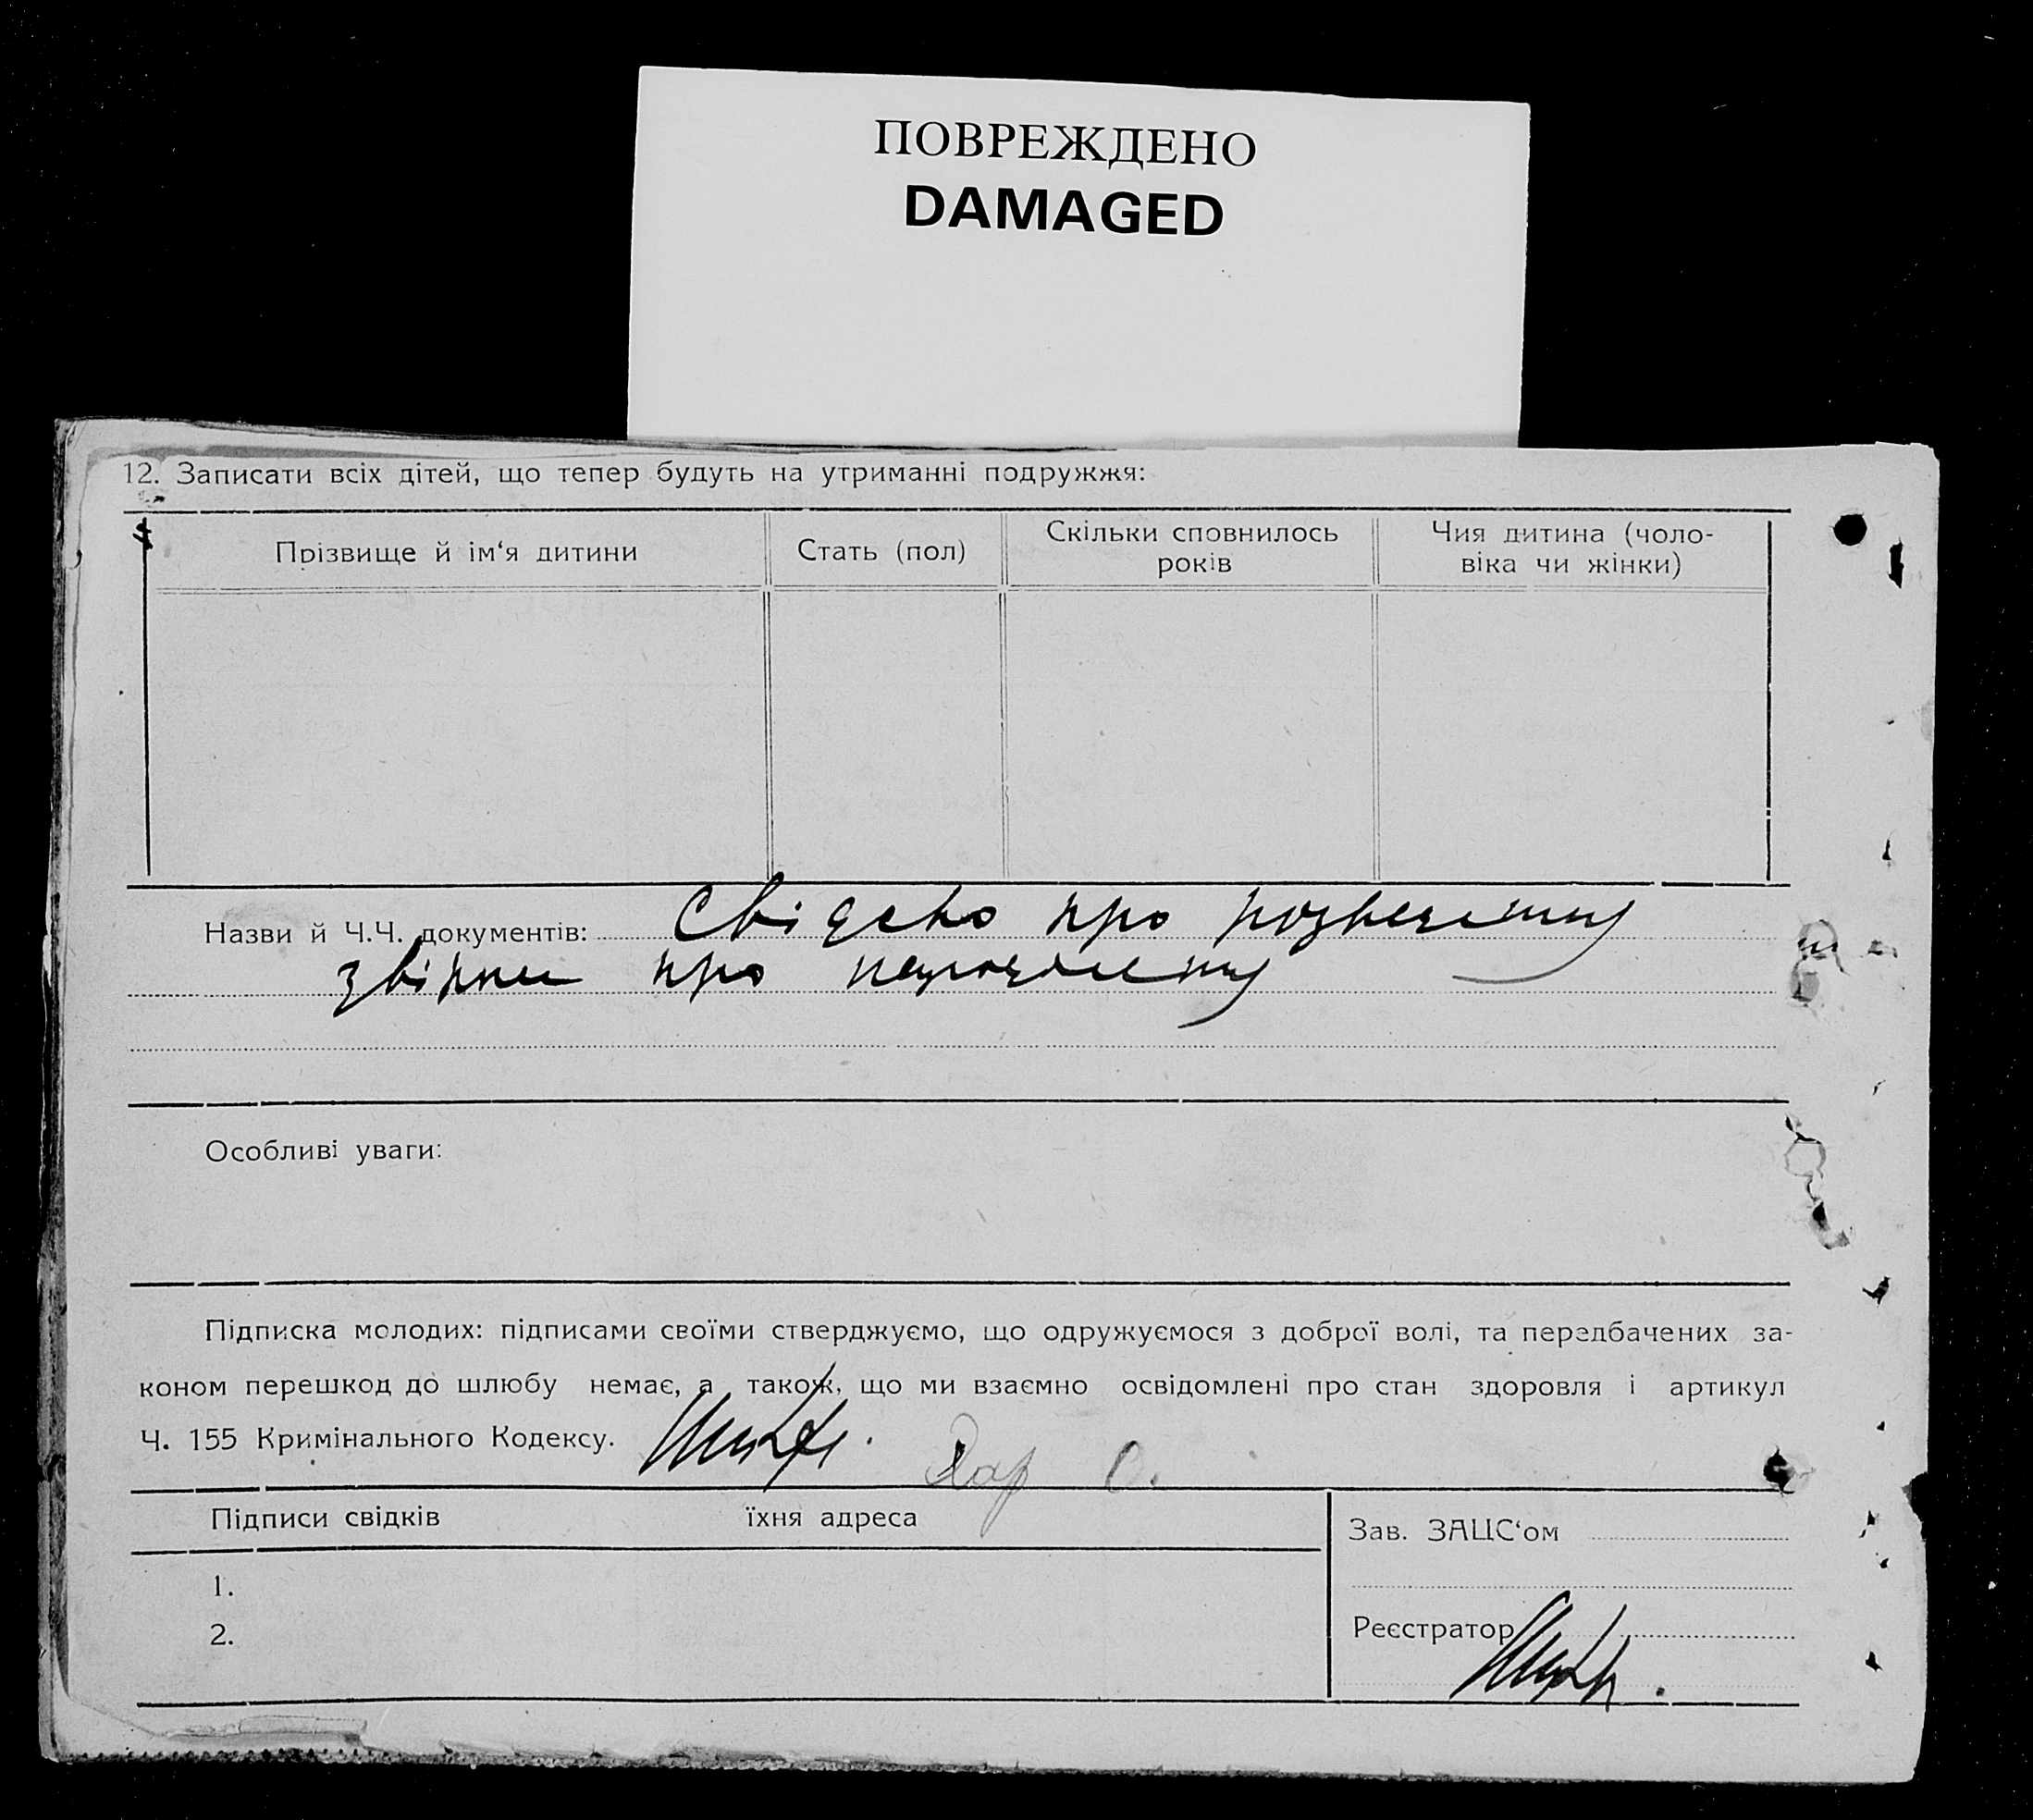 ПОВРЕЖДЕНО
DAMAGED
12. Записати всіх дітей, що тепер будуть на утриманні подружжя:
Прізвище й ім‘я дитини
Стать (пол)
Скільки сповнилось
років
Чия дитина (чоло-
віка чи жінки)
Назви й Ч.Ч. документів: про
про
Особливі уваги:
Підписка молодих: підписами своїми стверджуємо, що одружуємося з доброї волі, та передбачених за-
коном перешкод до шлюбу немає, а також, що ми взаємно освідомлені про стан здоровля і артикул
Ч. 155 Кримінального Кодексу.
Підписи свідків їхня адреса
Зав. ЗАЦС‘ом
1.
2.
Реєстратор